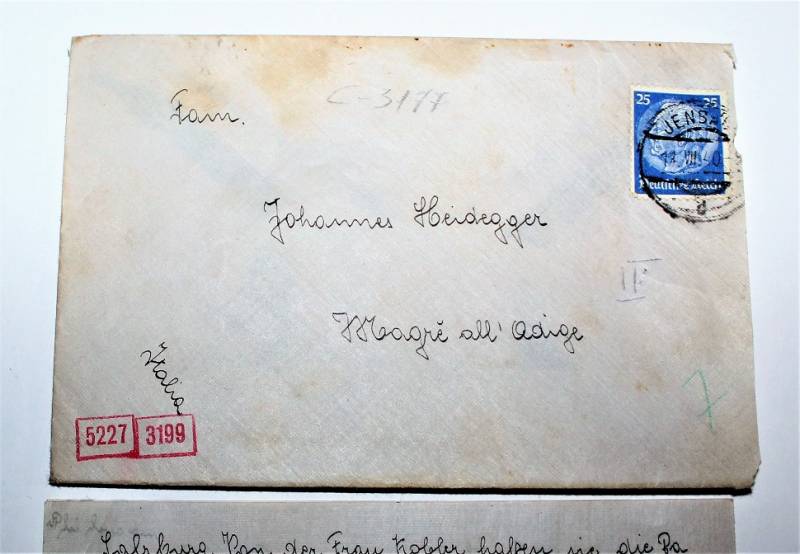 C-3177
Fam.
25 25
JENS
Deutsches Reich
Johannes Heidegger
II.
Magrè all'Adige
Italia
7
5227 3199
Salzburg. Von der Frau Kobler haben sie die Pa